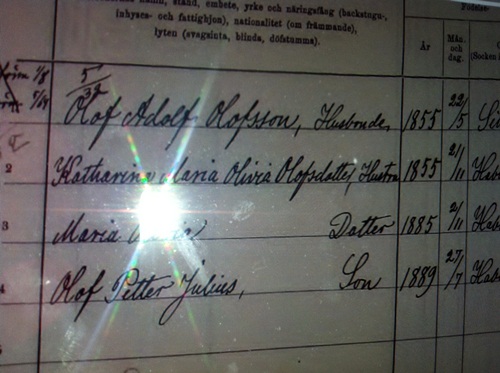 stånd, embete, yrke och näringsfång (backstugu-,
inhyses- och fattighjon), nationalitet (om främmande),
lyten (svagsinta, blinda, döfstumma).
År
Mån. och dag.
(Socken i
5/8
5/39
Olof Adolf Olofsson, Husbonde, 1855 22/5
2 Katharina Maria Olivia Olofsdotter, Hustru 1855 2/11
3 Maria Dotter 1885 2/11
4 Olof Petter Julius, Son 1889 27/7